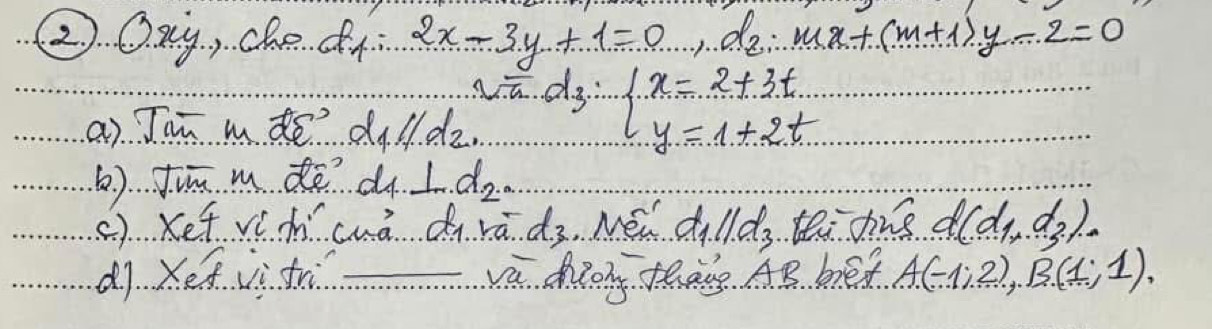 ② Oxy, cho d₁: 2x - 3y + 1 = 0, d₂: mx + (m+1)y - 2 = 0
và d₃: { x = 2 + 3t
a) Tìm m để d₁ // d₂. y = 1 + 2t
b) Tìm m để d₁ ⊥ d₂.
c) Xét vị trí của d₁ và d₃. Nếu d₁ // d₃ thì tính d(d₁, d₃).
d) Xét vị trí ——— và đường thẳng AB biết A(-1; 2), B(1; 1).